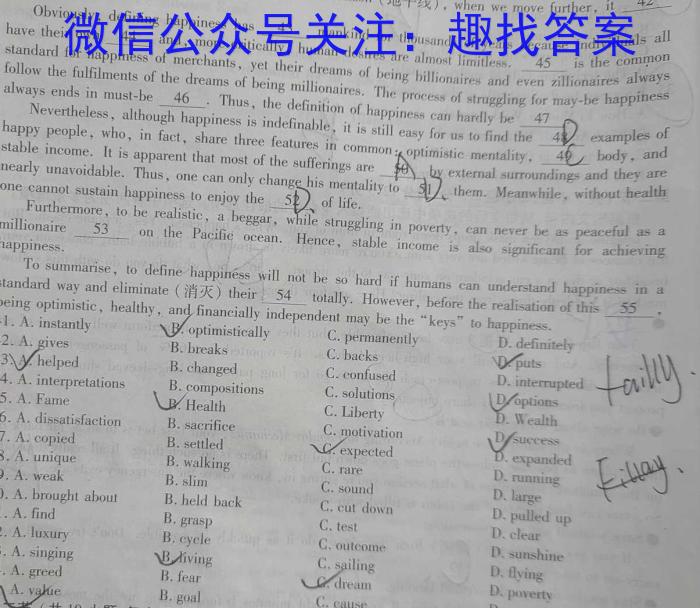 (地平线), when we move further, it 42
Obviously, defining happiness has 43 mankind thousands because individuals all
have their 44 and most critically human desires are almost limitless. 45 is the common
standard for happiness of merchants, yet their dreams of being billionaires and even zillionaires always
follow the fulfilments of the dreams of being millionaires. The process of struggling for may-be happiness
always ends in must-be 46 . Thus, the definition of happiness can hardly be 47
Nevertheless, although happiness is indefinable, it is still easy for us to find the 48 examples of
happy people, who, in fact, share three features in common: optimistic mentality, 49 body, and
stable income. It is apparent that most of the sufferings are 50 by external surroundings and they are
nearly unavoidable. Thus, one can only change his mentality to 51 them. Meanwhile, without health
one cannot sustain happiness to enjoy the 52 of life.
Furthermore, to be realistic, a beggar, while struggling in poverty, can never be as peaceful as a
millionaire 53 on the Pacific ocean. Hence, stable income is also significant for achieving
happiness.
To summarise, to define happiness will not be so hard if humans can understand happiness in a
standard way and eliminate (消灭) their 54 totally. However, before the realisation of this 55 ,
being optimistic, healthy, and financially independent may be the “keys” to happiness.
1. A. instantly B. optimistically C. permanently D. definitely
2. A. gives B. breaks C. backs D. puts
3. A. helped B. changed C. confused D. interrupted
4. A. interpretations B. compositions C. solutions D. options
5. A. Fame B. Health C. Liberty D. Wealth
6. A. dissatisfaction B. sacrifice C. motivation D. success
7. A. copied B. settled C. expected D. expanded
8. A. unique B. walking C. rare D. running
9. A. weak B. slim C. sound D. large
0. A. brought about B. held back C. cut down D. pulled up
. A. find B. grasp C. test D. clear
2. A. luxury B. cycle C. outcome D. sunshine
. A. singing B. living C. sailing D. flying
. A. greed B. fear C. dream D. poverty
A. value B. goal C. cause
微信公众号关注：趣找答案